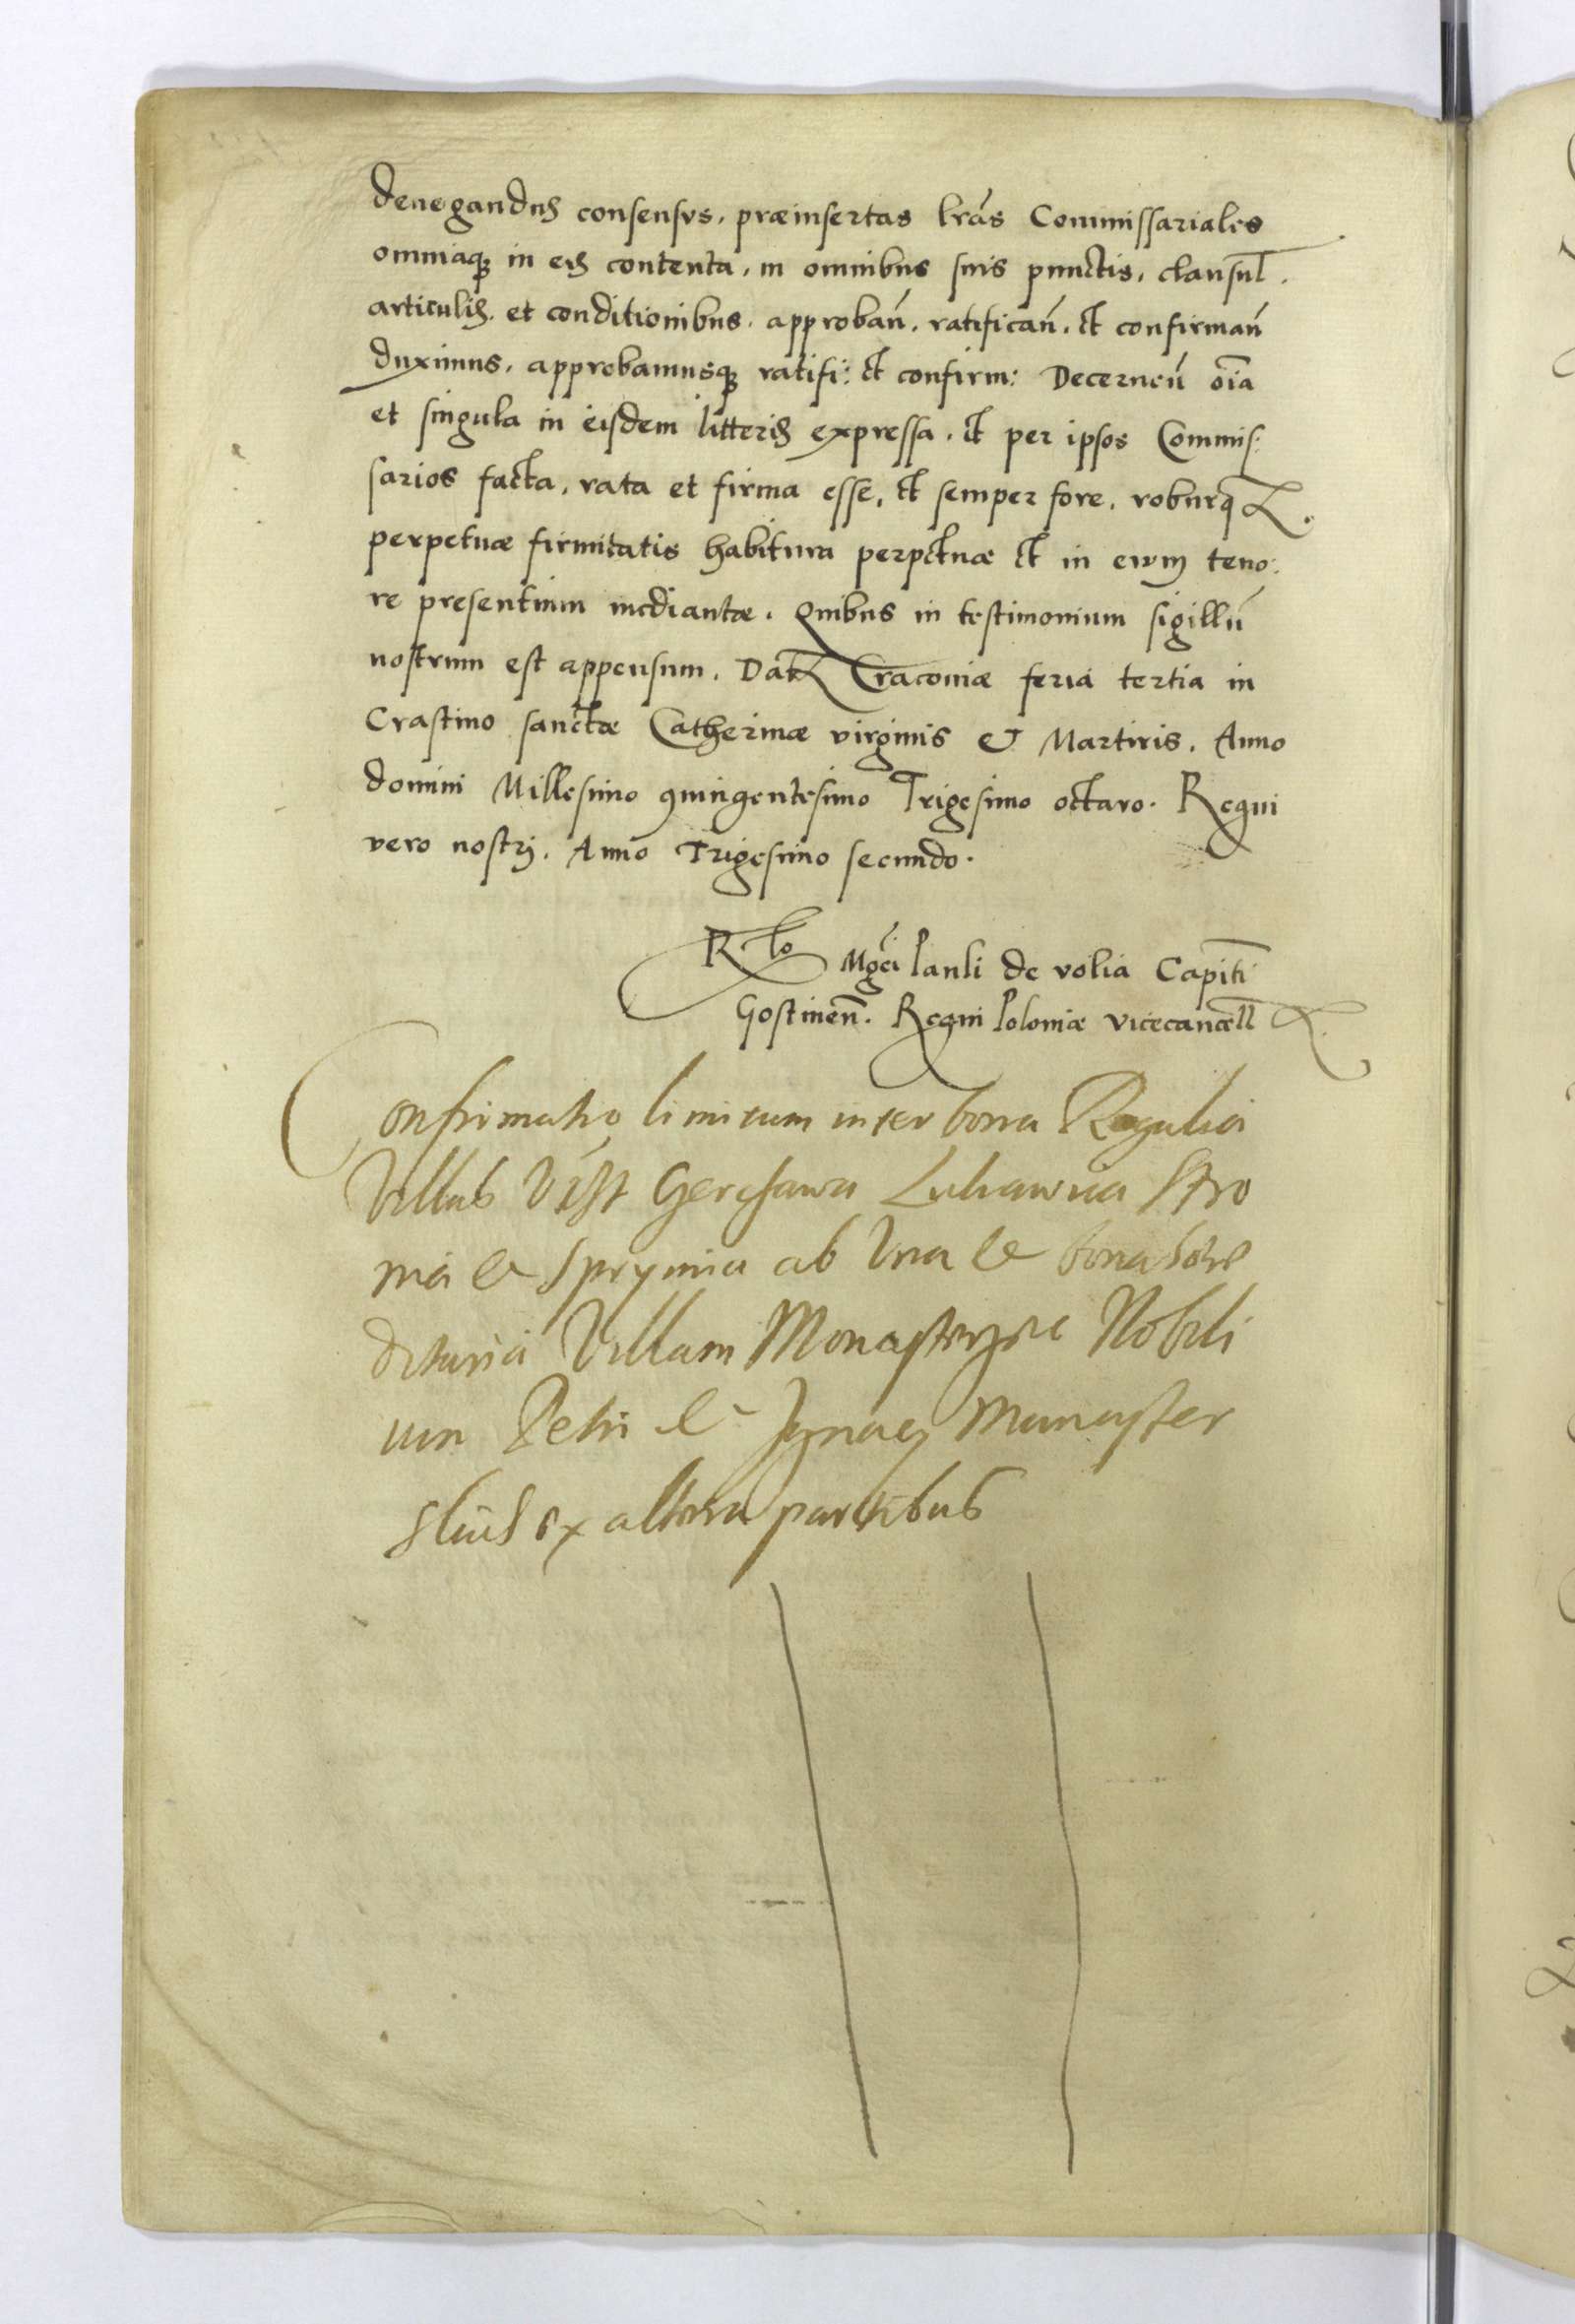 denegandum consensvs, præinsertas lrãs Commissariales
omniaq₃ in eis contenta, in omnibus suis punctis, clausul.
articulis, et conditionibus, approbañ, ratificañ, et confirmañ
duximus, approbamusq₃ ratifi: et confirm: Decerneñ oĩa
et singula in eisdem litteris expressa, et per ipsos Commis:
sarios facta, rata et firma esse, et semper fore, roburq
perpetuæ firmitatis habitura perpetuæ et in ewm teno:
re presentium mediantæ. Quibus in testimonium sigillũ
nostrum est appensum. Dat Cracoviæ feria tertia in
Crastino sanctæ Catherinæ virginis & Martiris, Anno
domini Millesimo quingentesimo Trigesimo octavo. Regni
vero nostrj. Anno Trigesimo secundo.
Rlo Mgci Pauli de volia Capitĩ
Gostineñ. Regni Poloniæ vicecancell
Confirmatio limitum inter bona Regalia
Villas Gerchawa Luhawiia Stro
nia et Sprynnia ab Vna et bona here
ditaria Villam Monasterzec Nobili
um Petri et Ignacy Manaster
slius ex altera partibus